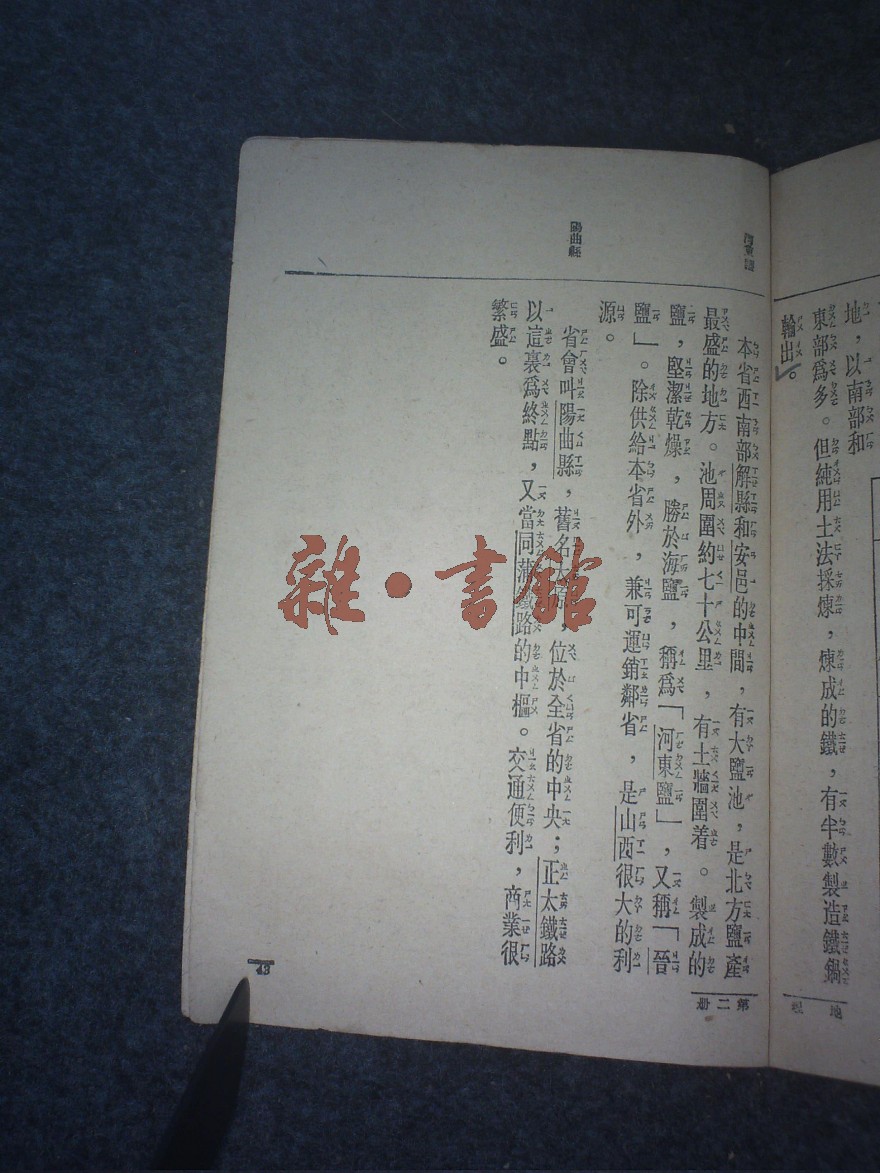 地，以南部和
東部爲多。但純用土法採煉，煉成的鐵，有半數製造鐵鍋
輸出。
本省西南部解縣和安邑的中間，有大鹽池，是北方鹽產
最盛的地方。池周圍約七十公里，有土牆圍着。製成的
鹽，堅潔乾燥，勝於海鹽，稱爲「河東鹽」，又稱「晉
鹽」。除供給本省外，兼可運銷鄰省，是山西很大的利
源。
陽曲縣
省會叫陽曲縣，舊名太原，位於全省的中央；正太鐵路
以這裏爲終點，又當同蒲鐵路的中樞。交通便利，商業很
繁盛。
第二册
43
雜·書館